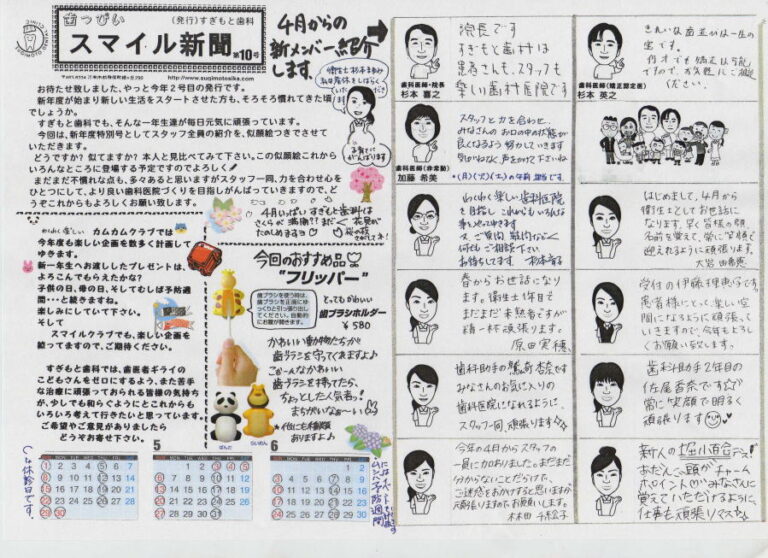 歯っぴい
(発行)すぎもと歯科
スマイル新聞
第10号
http://www.sugimotosika.com
4月からの
新メンバー紹介
します。
お待たせ致しました、やっと今年2号目の発行です。
新年度が始まり新しい生活をスタートさせた方も、そろそろ慣れてきた頃
でしょうか。
すぎもと歯科でも、そんな一年生達が毎日元気に頑張っています。
今回は、新年度特別号としてスタッフ全員の紹介を、似顔絵つきでさせて
いただきます。
どうですか? 似てますか? 本人と見比べてみて下さい。この似顔絵これから
いろんなところに登場する予定ですのでよろしく
まだまだ不慣れな点も、多々あると思いますがスタッフ一同、力を合わせ心を
ひとつにして、より良い歯科医院づくりを目指しがんばっていきますので、ど
うぞこれからもよろしくお願い致します。
4月いっぱい すぎもと歯科は
さくらが満開!!
わくわく楽しい カムカムクラブでは
今年度も楽しい企画を数多く計画して
ゆきます。
新一年生へお渡ししたプレゼントは、
よろこんでもらえたかな?
子供の日、母の日、そしてむしば予防週
間・・・と続きますね。
楽しみにしていて下さい。
そして
スマイルクラブでも、楽しい企画を
練ってますので、ご期待ください。
すぎもと歯科では、歯医者ギライの
こどもさんをゼロにするよう、また苦手
な治療に頑張っておられる皆様の気持ち
が、少しでも和らぐようにとこれからも
いろいろ考えて行きたいと思っています。
ご希望やご意見がありましたら
どうぞお寄せ下さい。
今回のおすすめ品
"フリッパー"
とってもかわいい
歯ブラシホルダー
¥580
かわいい動物たちが
歯ブラシを守ってくれますよ♪
こ〜んなかわいい
歯ブラシを持ってたら、
ちょっとした人気者!
まちがいな〜い
他にも種類
ありますよ
ぱんだ
らいおん
は休診日です。
5
6
院長です
すぎもと歯科は
患者さんも、スタッフも
楽しい歯科医院です
歯科医師・院長
杉本 英之
きれいな歯並びは一生の
宝です。
ください。
歯科医師(矯正認定医)
杉本 喜之
スタッフと力を合わせ、
みなさんのお口の中の状態が
良くなるよう 努力していきます
気がねなく 声をかけて下さいね
(月)(火)(土)の午前 勤務です。
歯科医師(非常勤)
加藤 希美
わくわく楽しい歯科医院
を目指し これからもいろんな
事をやってゆきます
何でもご相談下さい
お待ちしてます
はじめまして。4月から
衛生士としてお世話に
なります。早く皆様の顔、
名前を覚えて、常に笑顔で
迎えれるように頑張ります。
春からお世話になり
ます。衛生士1年目で
まだまだ未熟者ですが
精一杯 頑張ります。
原田 実穂
受付の伊藤理恵子です。
患者様にとって、楽しい空
間になるように頑張って
いきますので、今年もよろし
くお願い致します。
歯科助手の鷲町 杏奈です
みなさんのお気に入りの
歯科医院になれるように、
スタッフ一同、頑張ります
歯科助手2年目の
佐尾香奈です☆
常に笑顔で明るく
頑張ります
今年の4月からスタッフの
一員に加わりました。まだまだ
分からないことだらけで、
ご迷惑をおかけすると思いますが
頑張りますのでお願いします。
新人の堀小百合デス!
みなさんに
覚えていただけるように、
仕事も頑張りマス